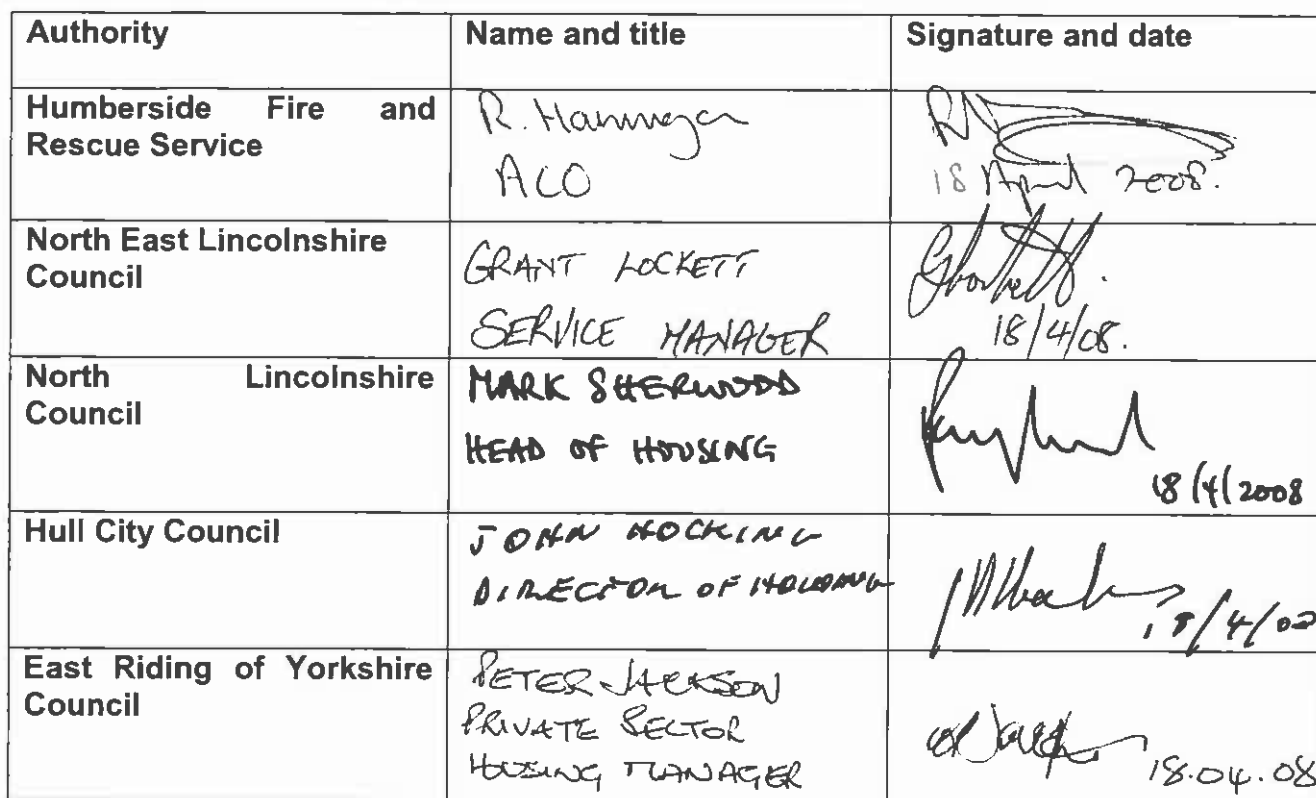 Authority
Name and title
Signature and date
Humberside Fire and
Rescue Service
R.
ACO
18 April 2008.
North East Lincolnshire
Council
GRANT LOCKETT
SERVICE MANAGER
18/4/08.
North Lincolnshire
Council
MARK SHERWOOD
HEAD OF HOUSING
18/4/2008
Hull City Council
JOHN HOCKING
DIRECTOR OF HOUSING
East Riding of Yorkshire
Council
PETER JACKSON
PRIVATE SECTOR
HOUSING MANAGER
18.04.08